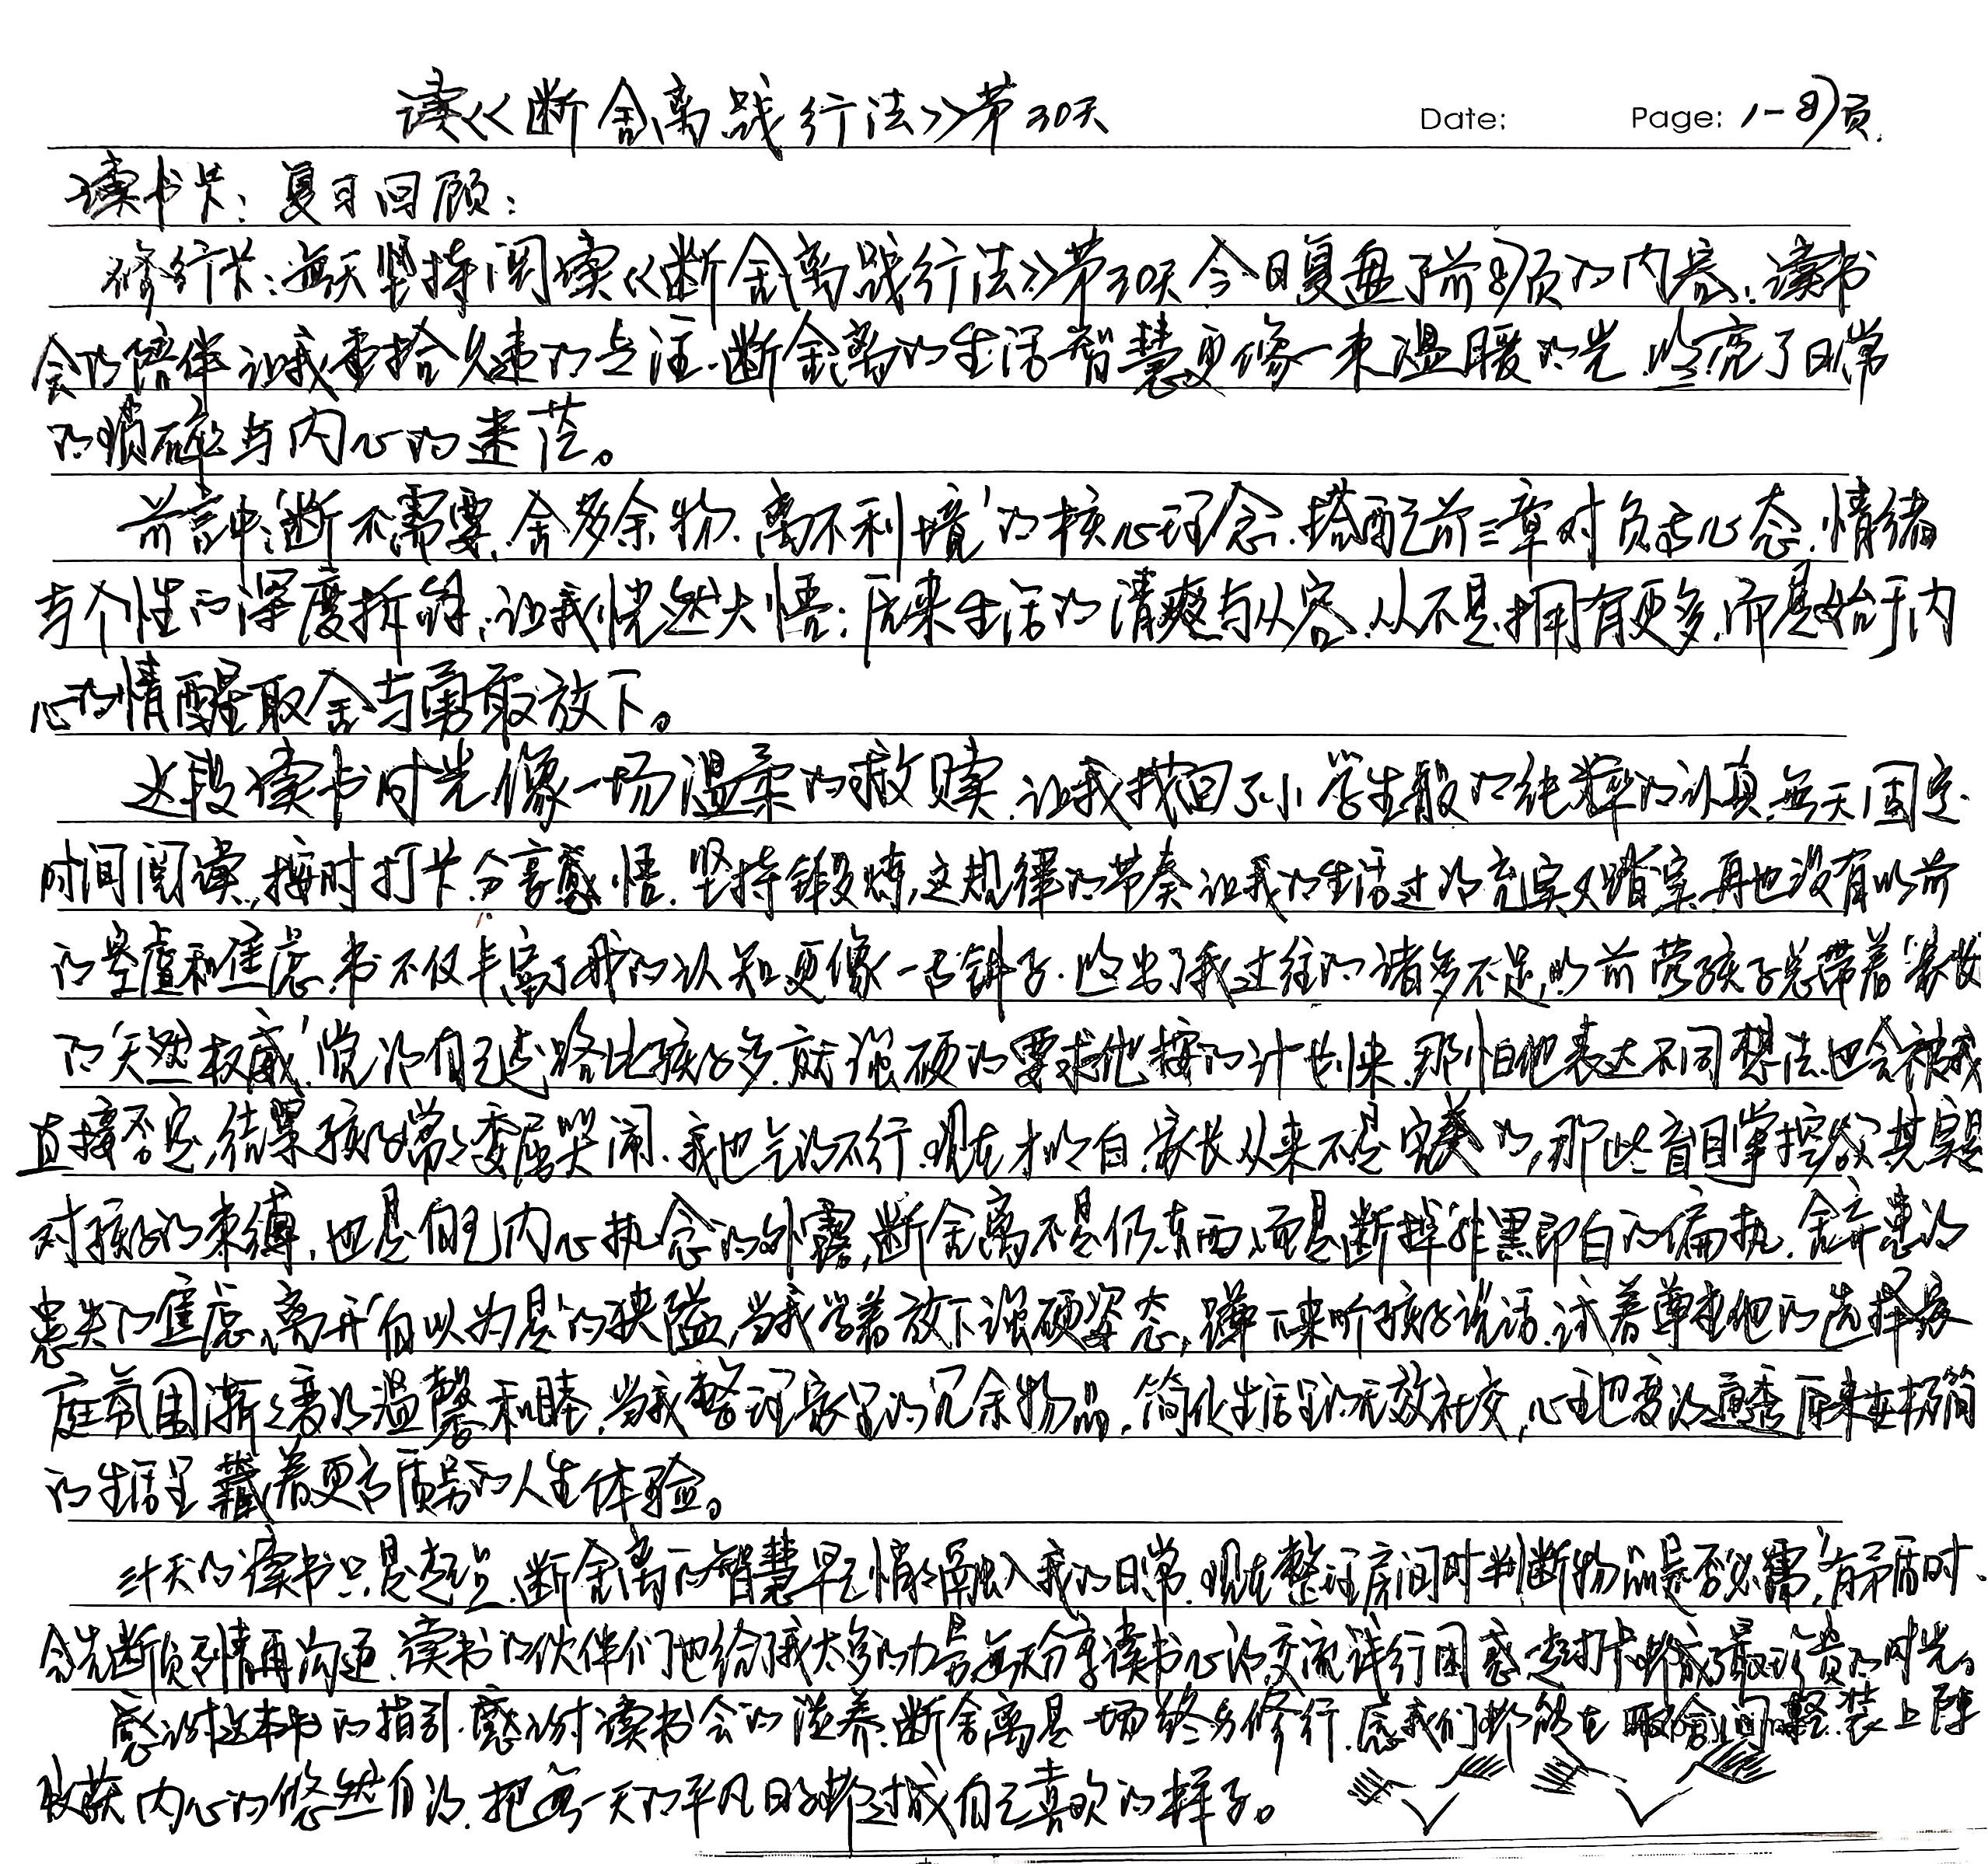 读《断舍离践行法》第30天 Date: Page: 1-87页.
读书卡: 复习回顾:
修行卡:每天坚持阅读《断舍离践行法》第30天今日复盘了前87页的内容,读书
会的陪伴让我重拾久违的专注.断舍离的生活智慧更像一束温暖的光.照亮了日常
的琐碎与内心的迷茫。
前言中'断不需要.舍多余物.离不利境'的核心理念.搭配前三章对负面心态.情绪
与个性的深度拆解,让我恍然大悟:原来生活的清爽与从容.从不是拥有更多,而是始于内
心的情醒取舍与勇敢放下。
这段读书时光像一场温柔的救赎.让我找回了小学生般的纯粹的认真.每天固定
时间阅读,按时打卡.分享感悟.坚持锻炼,这规律的节奏让我的生活过的充实又踏实.再也没有以前
的空虚和焦虑,书不仅丰富了我的认知更像一面镜子.照出了我过往的诸多不足,以前带孩子总带着'家长
的天然权威'觉得自己走路比孩子多.就强硬的要求他按的计划来.那怕他表达不同想法也会被我
直接否定,结果孩子常常委屈哭闹.我也气的不行.现在才明白.家长从来不是完美的,那些盲目掌控欲其实是
对孩子的束缚,也是自己内心执念的外露,断舍离不是仍东西,而是断掉非黑即白的偏执.舍弃患得
患失的焦虑、离开'自以为是'的狭隘,当我学着放下强硬姿态,蹲下来听孩子说话.试着尊重他的选择家
庭氛围渐渐变得温馨和睦.当我整理家里的冗余物品,简化生活里的无效社交,心里也变得通透原来在极简
的生活里藏着更高质量的人生体验。
三十天的读书只是起点.断舍离的智慧早已悄悄融入我的日常.现在整理房间时判断物品是否必需,有矛盾时、
会先断负面情再沟通.读书的伙伴们也给了我太多的力量每天分享读书心得交流践行困惑.打卡都成了最珍贵的时光。
感谢这本书的指引.感谢读书会的滋养.断舍离是一场终身修行.愿我们都能在取舍间轻装上阵
收获内心的悠然自得.把每一天的平凡日子都过成自己喜欢的样子。